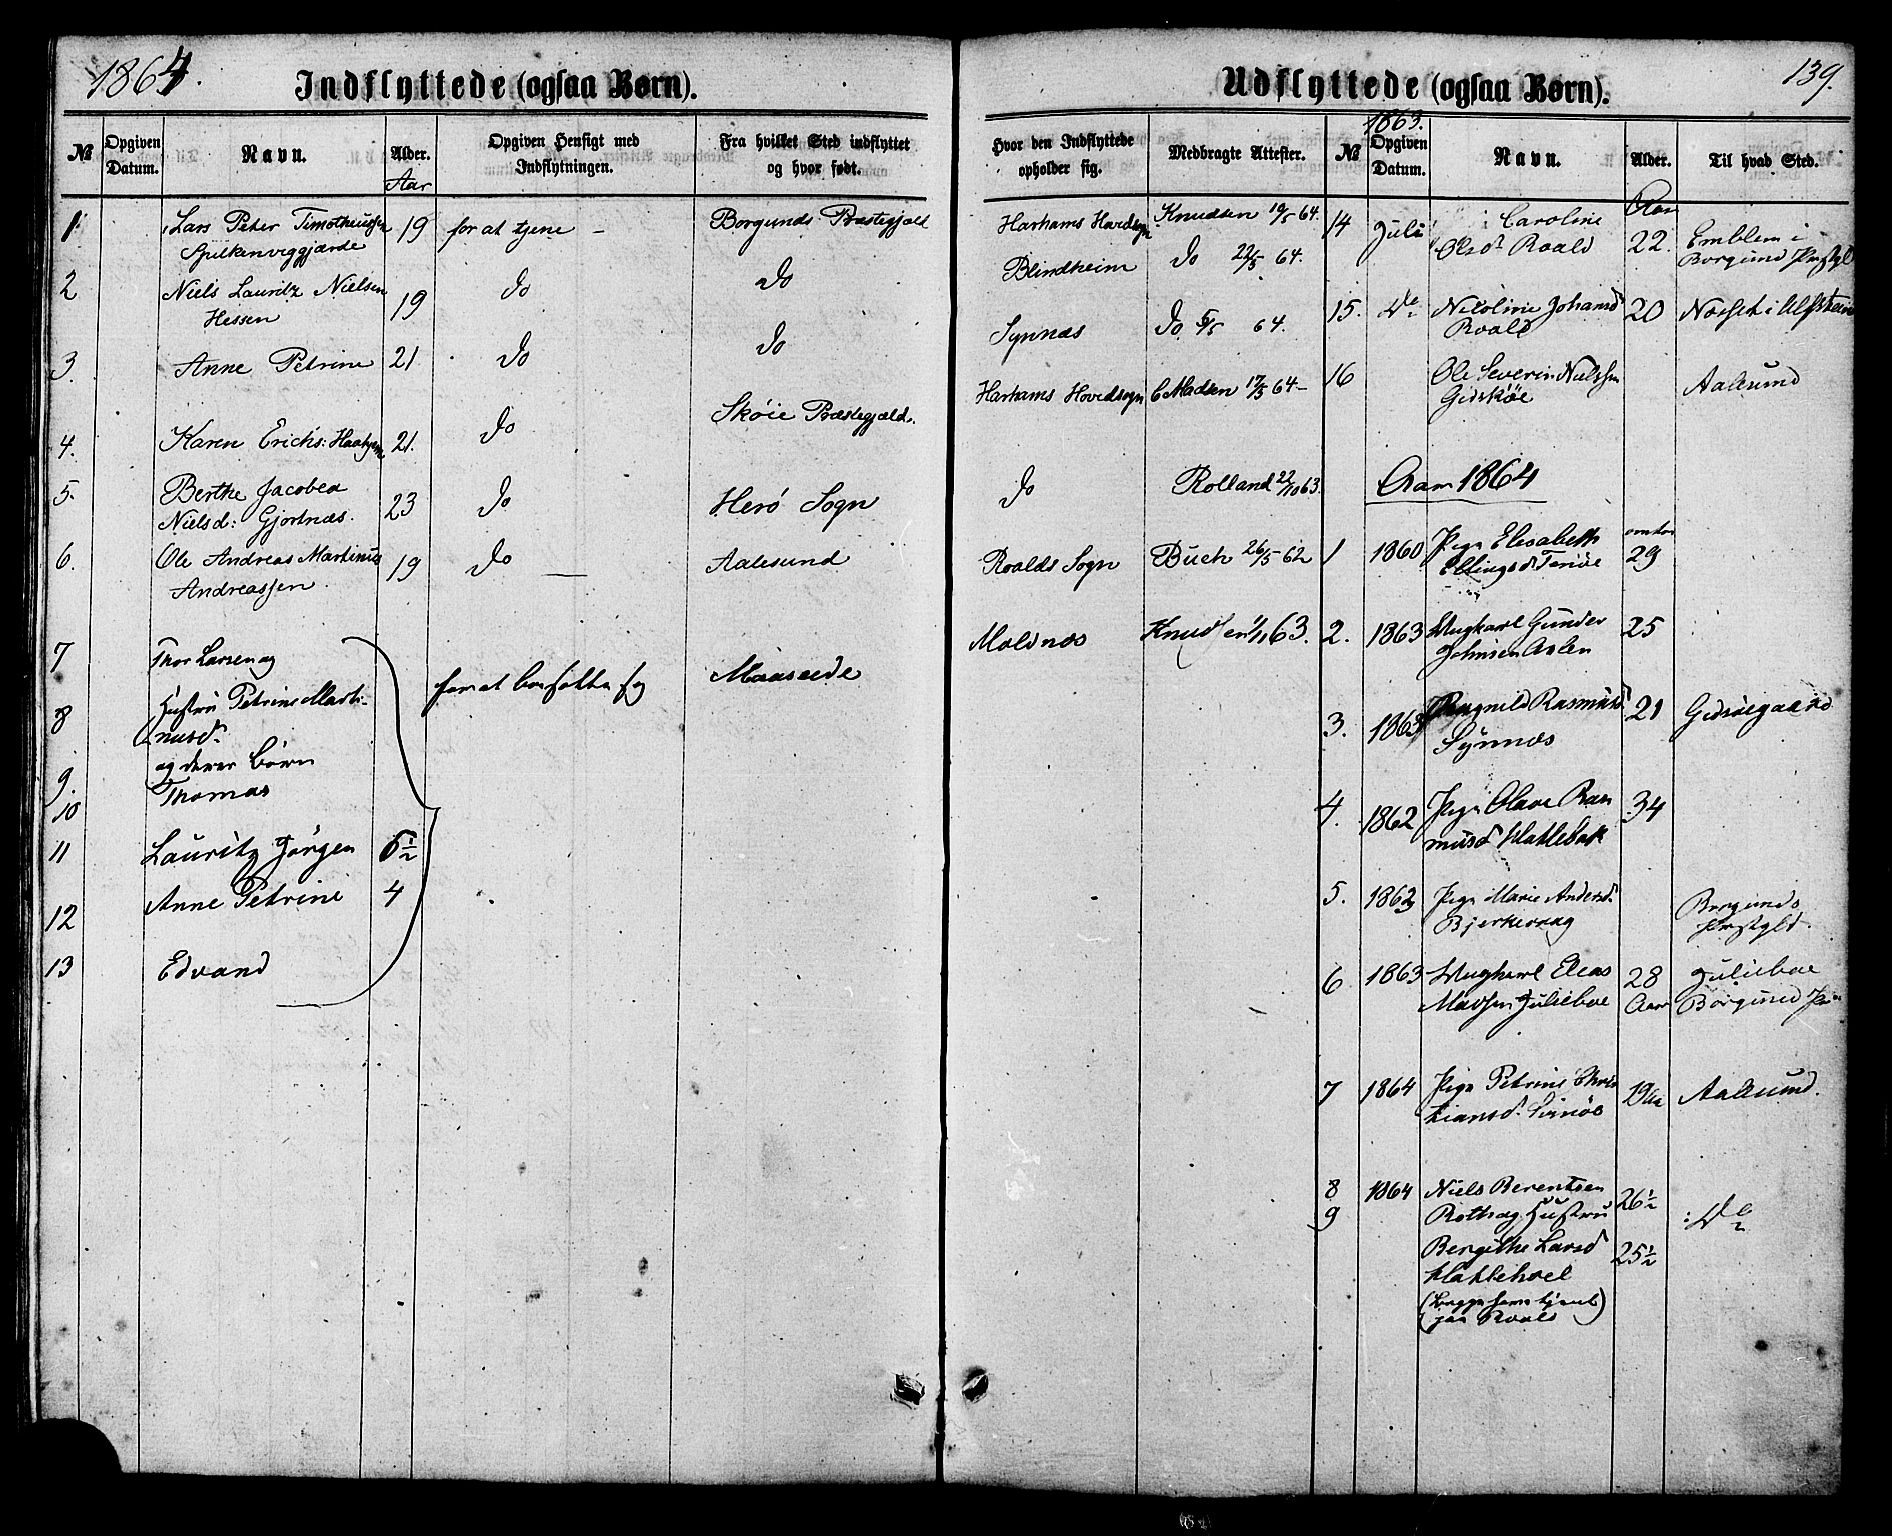 1864.
Indflyttede (ogsaa Børn).
№
Opgiven Datum.
Navn.
Alder.
Aar
Opgiven Hensigt med Indflytningen.
Fra hvilket Sted indflyttet og hvor født.
1. Lars Peter Timotheussen 19 for at tjene – Borgunds Præstegjæld
Spilkenviggjærde
2 Niels Lauritz Nielsen 19 Do Do
Hessen
3. Anne Petrine 21. Do Do
4. Karen Erichs: 21. Do Skøie Præstegjæld.
5. Berthe Jacobea
Nielsd: Gjortnæs. 23 Do Herø Sogn
6. Ole Andreas Martinus 19 Do Aalesund
Andreassen
7 Thor Larsen og
8 Hustru Petrine Marti-
nusd. for at bosætte sig Maaseide
og deres Børn
9. Thomas
10
11 Lauritz Jørgen 6½
Anne Petrine 4
12
13 Edvard
139.
Udflyttede (ogsaa Børn).
Hvor den Indflyttede opholder sig.
Medbragte Attester.
№
1863.
Opgiven Datum.
Navn.
Alder.
Til hvad Sted.
Aar
Harhams Hovedsogn Knudsen 19/5 64. 14 Juli Caroline
Olsd. Roald 22. Emblem i
Borgund Prstgld
Blindheim Do 22/5 64.
Synnæs Do 64. 15. Do Nicoline Johansd 20
Roald
Harhams Hovedsogn C Madsen 17/5 64 – 16 Ole Severin Nielssen Aalesund
Gidskøe
Do Rolland 22/10 63. Aar 1864
omtr
Roalds Sogn Buch 26/5 62 1 1860 Pige Elisabeth 29
Ellingsd
Moldnæs Knudsen 63. 2. 1863 Ungkarl Gunder 25
Johnsen
3. 1863 Ragnild Rasmusd 21
Synnæs
4. 1862 Pige Olave Ras 34
musd Hatlebak
5. 1862 Pige Marie Andersd. Borgunds
Prstgld.
6 1863 Ungkarl Eleas 28 Juliebøe
Madsen Juliebøe Aar Borgund
7 1864 Pige Petrine Chris 19 Aar Aalesund.
tiansd.
8 1864 Niels Berentsen 26½
9 Hustru Do
Bergithe Larsd 25½
Hatlehoel
(begge have tjent)
paa Roald